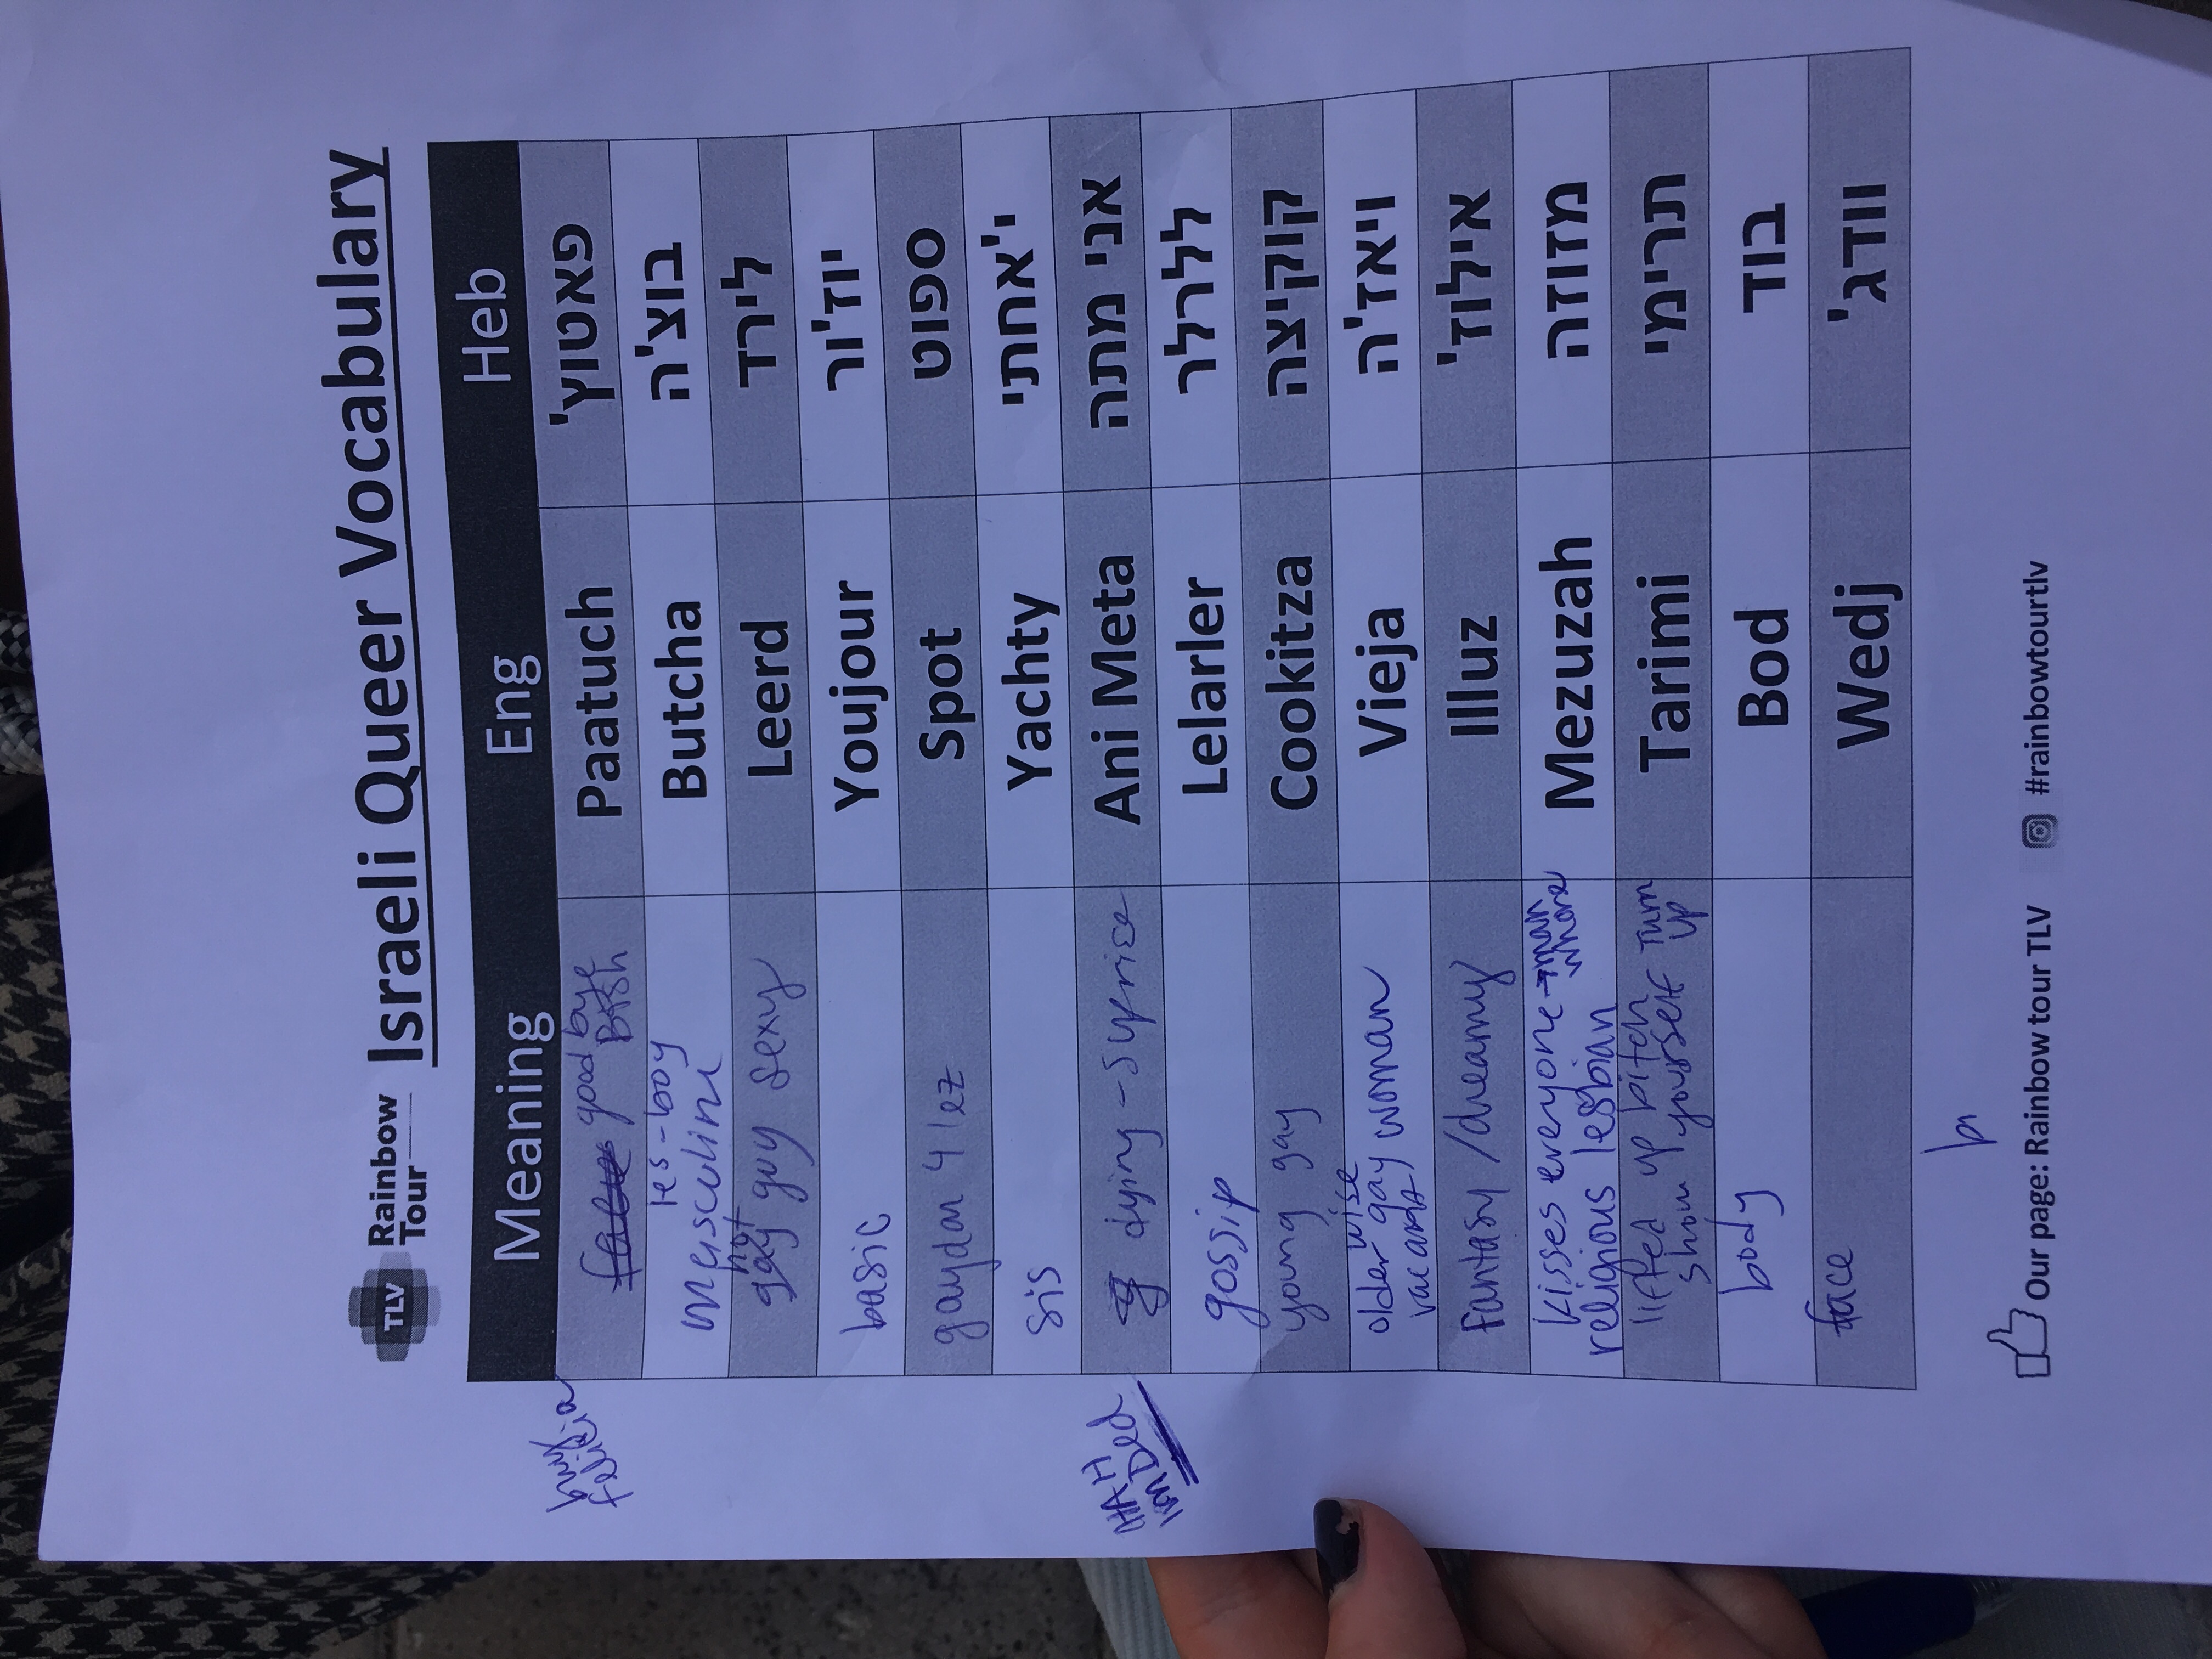 TLV Rainbow Tour
Israeli Queer Vocabulary
Meaning Eng Heb
good bye Paatuch פאטוץ'
Bish
buy
felicia
les-boy Butcha בוצ'ה
masculine
hot guy sexy Leerd לירד
basic Youjour יוז'ור
gaydar 4 lez Spot ספוט
sis Yachty י'אחתי
dying - suprise Ani Meta אני מתה
HAH
im Ded
gossip Lelarler ללרלר
young gay Cookitza קוקיצה
older wise gay woman Vieja ויאז'ה
Fantasy / dreamy Illuz אילוז'
kisses everyone → man whore Mezuzah מזוזה
religious lesbian
lifted up bitch Turn up Tarimi תרימי
show yourself
body Bod בוד
face Wedj וודג'
Our page: Rainbow tour TLV #rainbowtourtlv